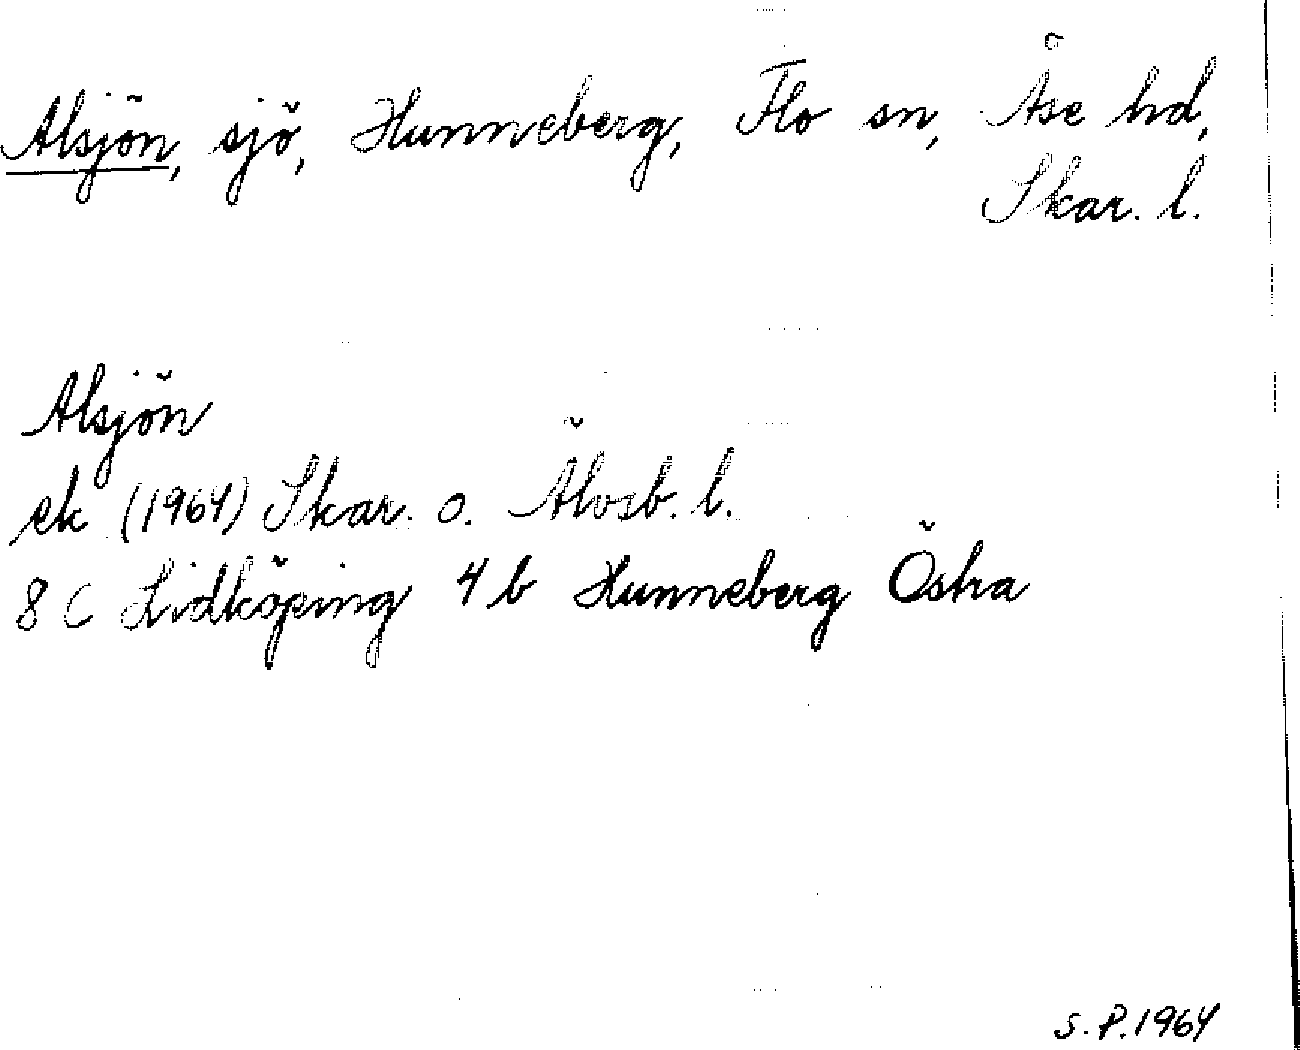 Alsjön, sjö, Hunneberg, Flo sn, Åse hd,
Skar. l.
Alsjön
ek (1964) Skar. o. Älvsb. l.
8 C Lidköping 4 b Hunneberg Östra
S. P. 1964